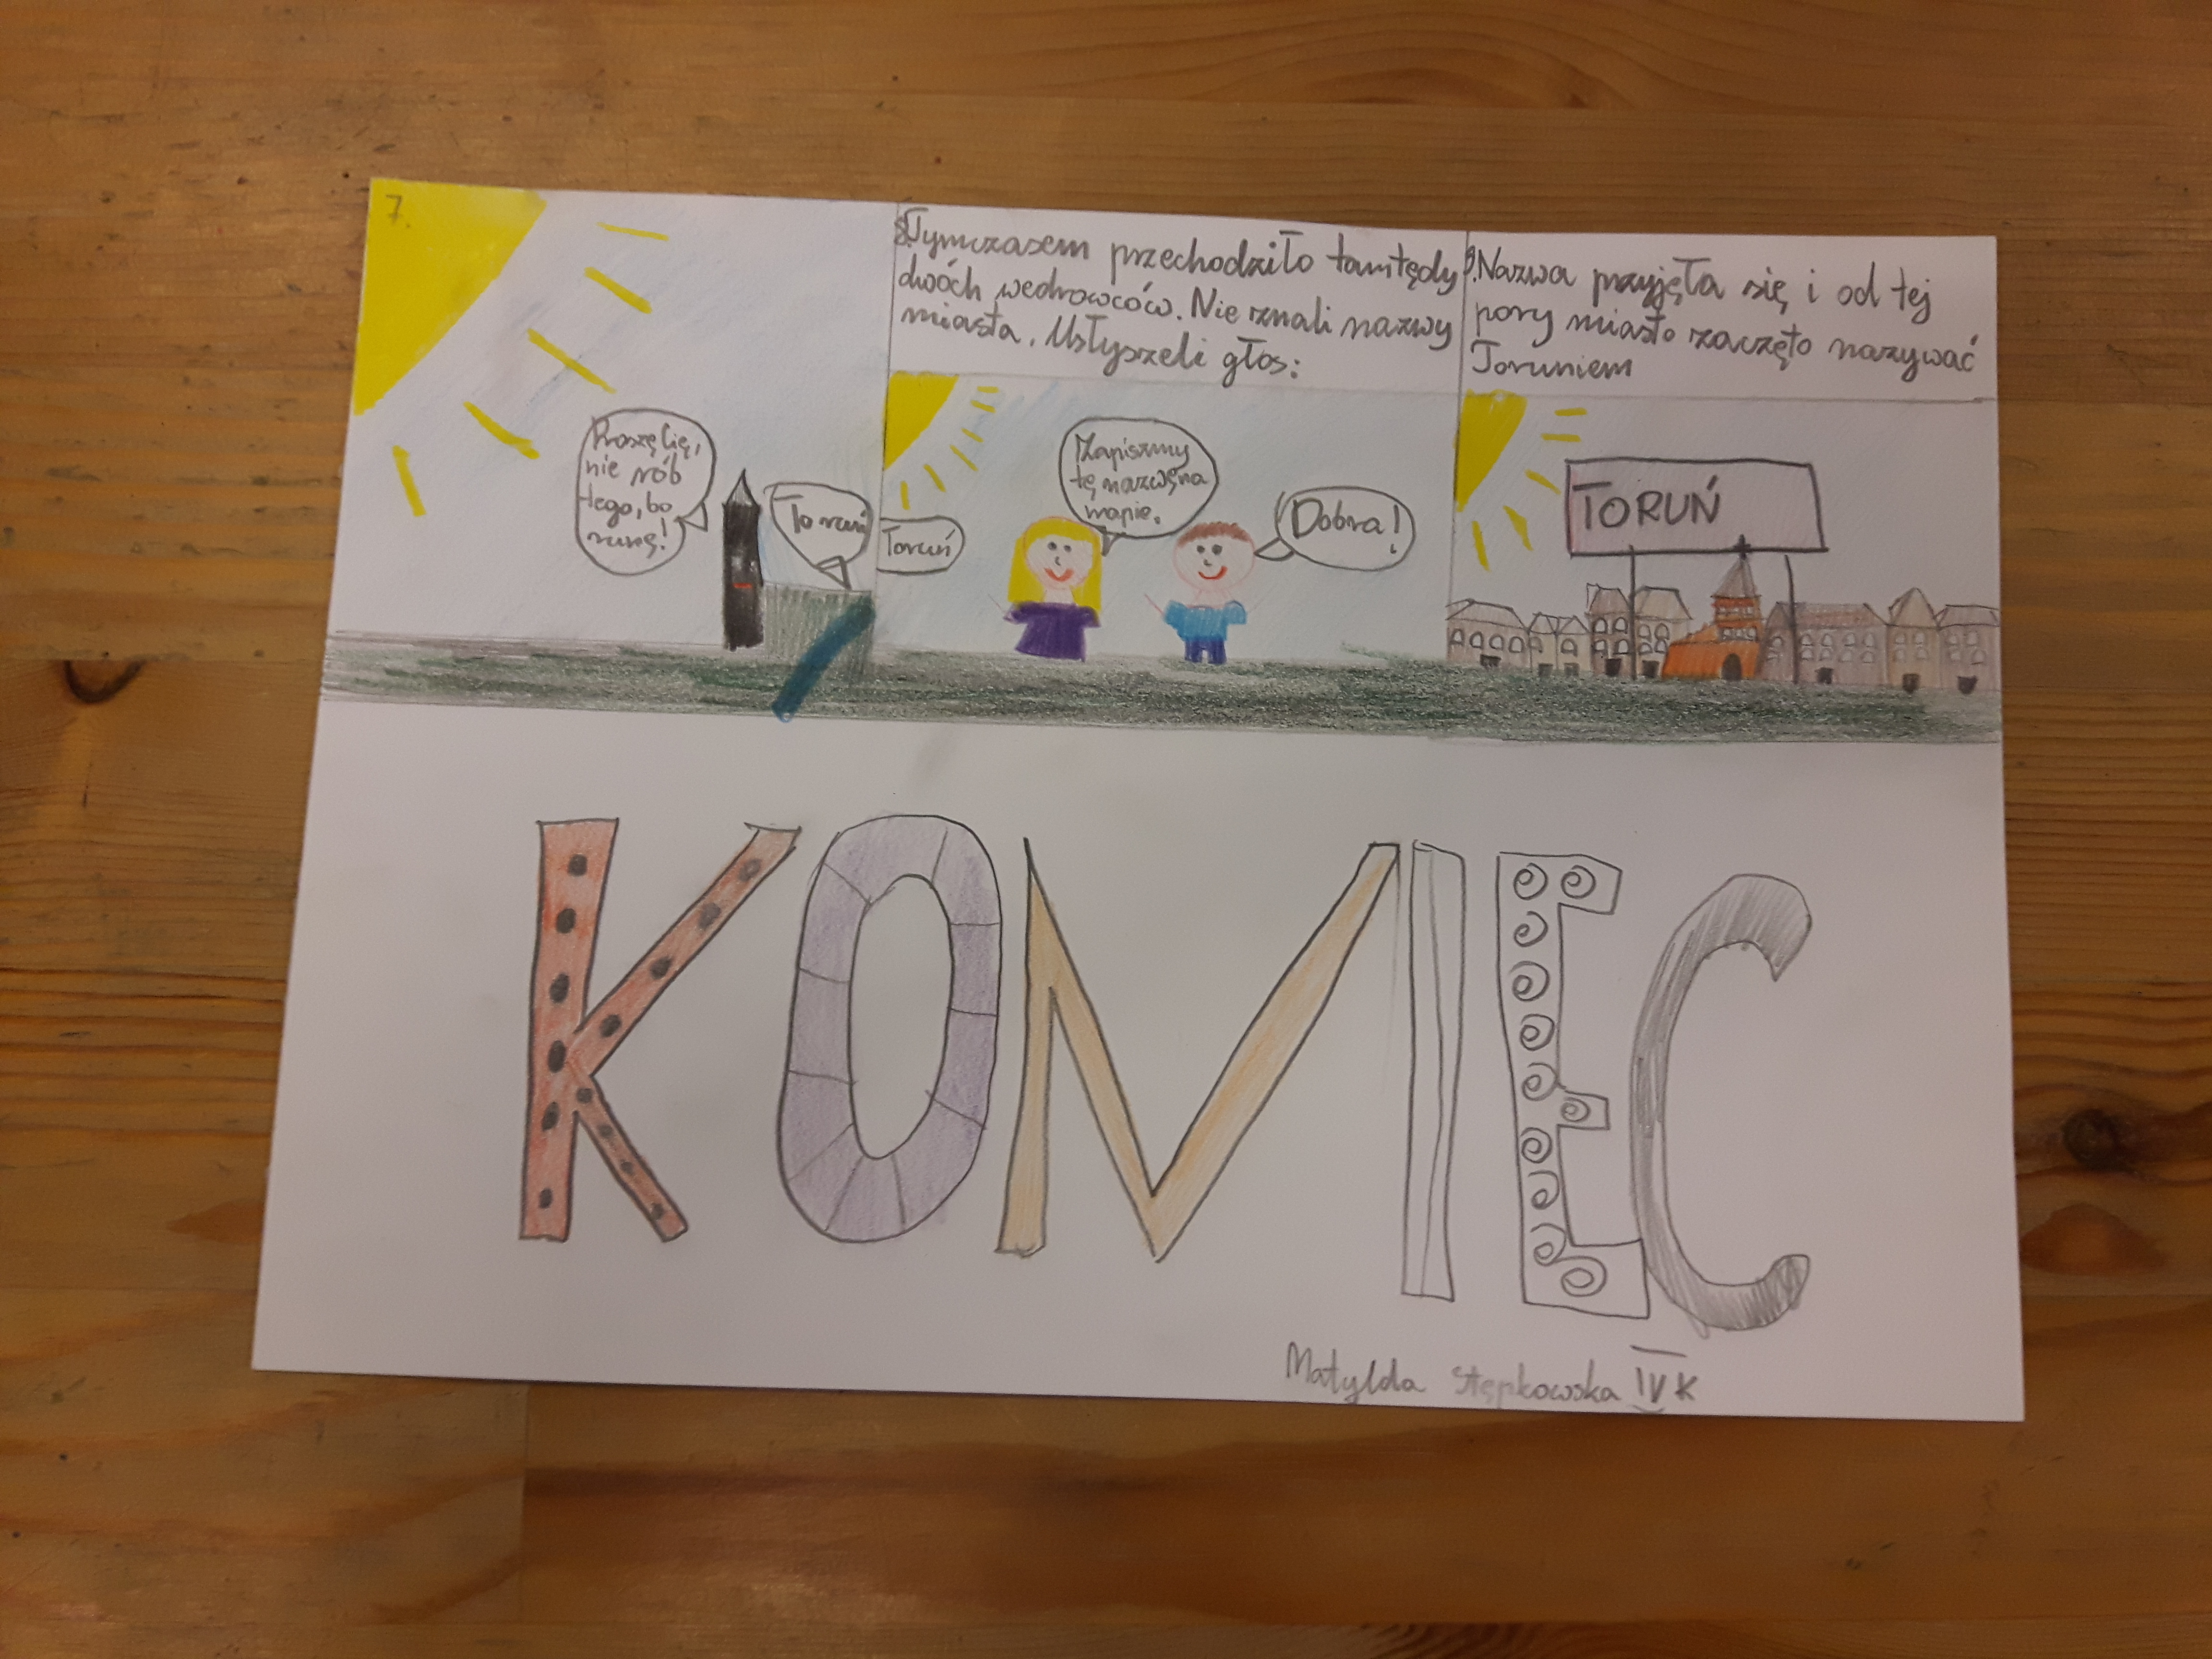 7.
Proszę Cię,
nie rób
tego, bo
runę!
To ruń
8. Tymczasem przechodziło tamtędy
dwóch wedrowców. Nie znali nazwy
miasta. Usłyszeli głos:
Toruń
Zapiszmy
tę nazwę na
mapie.
Dobra!
9. Nazwa przyjęła się i od tej
pory miasto zaczęto nazywać
Toruniem
TORUŃ
KOMIEC
Matylda Stępkowska IV K